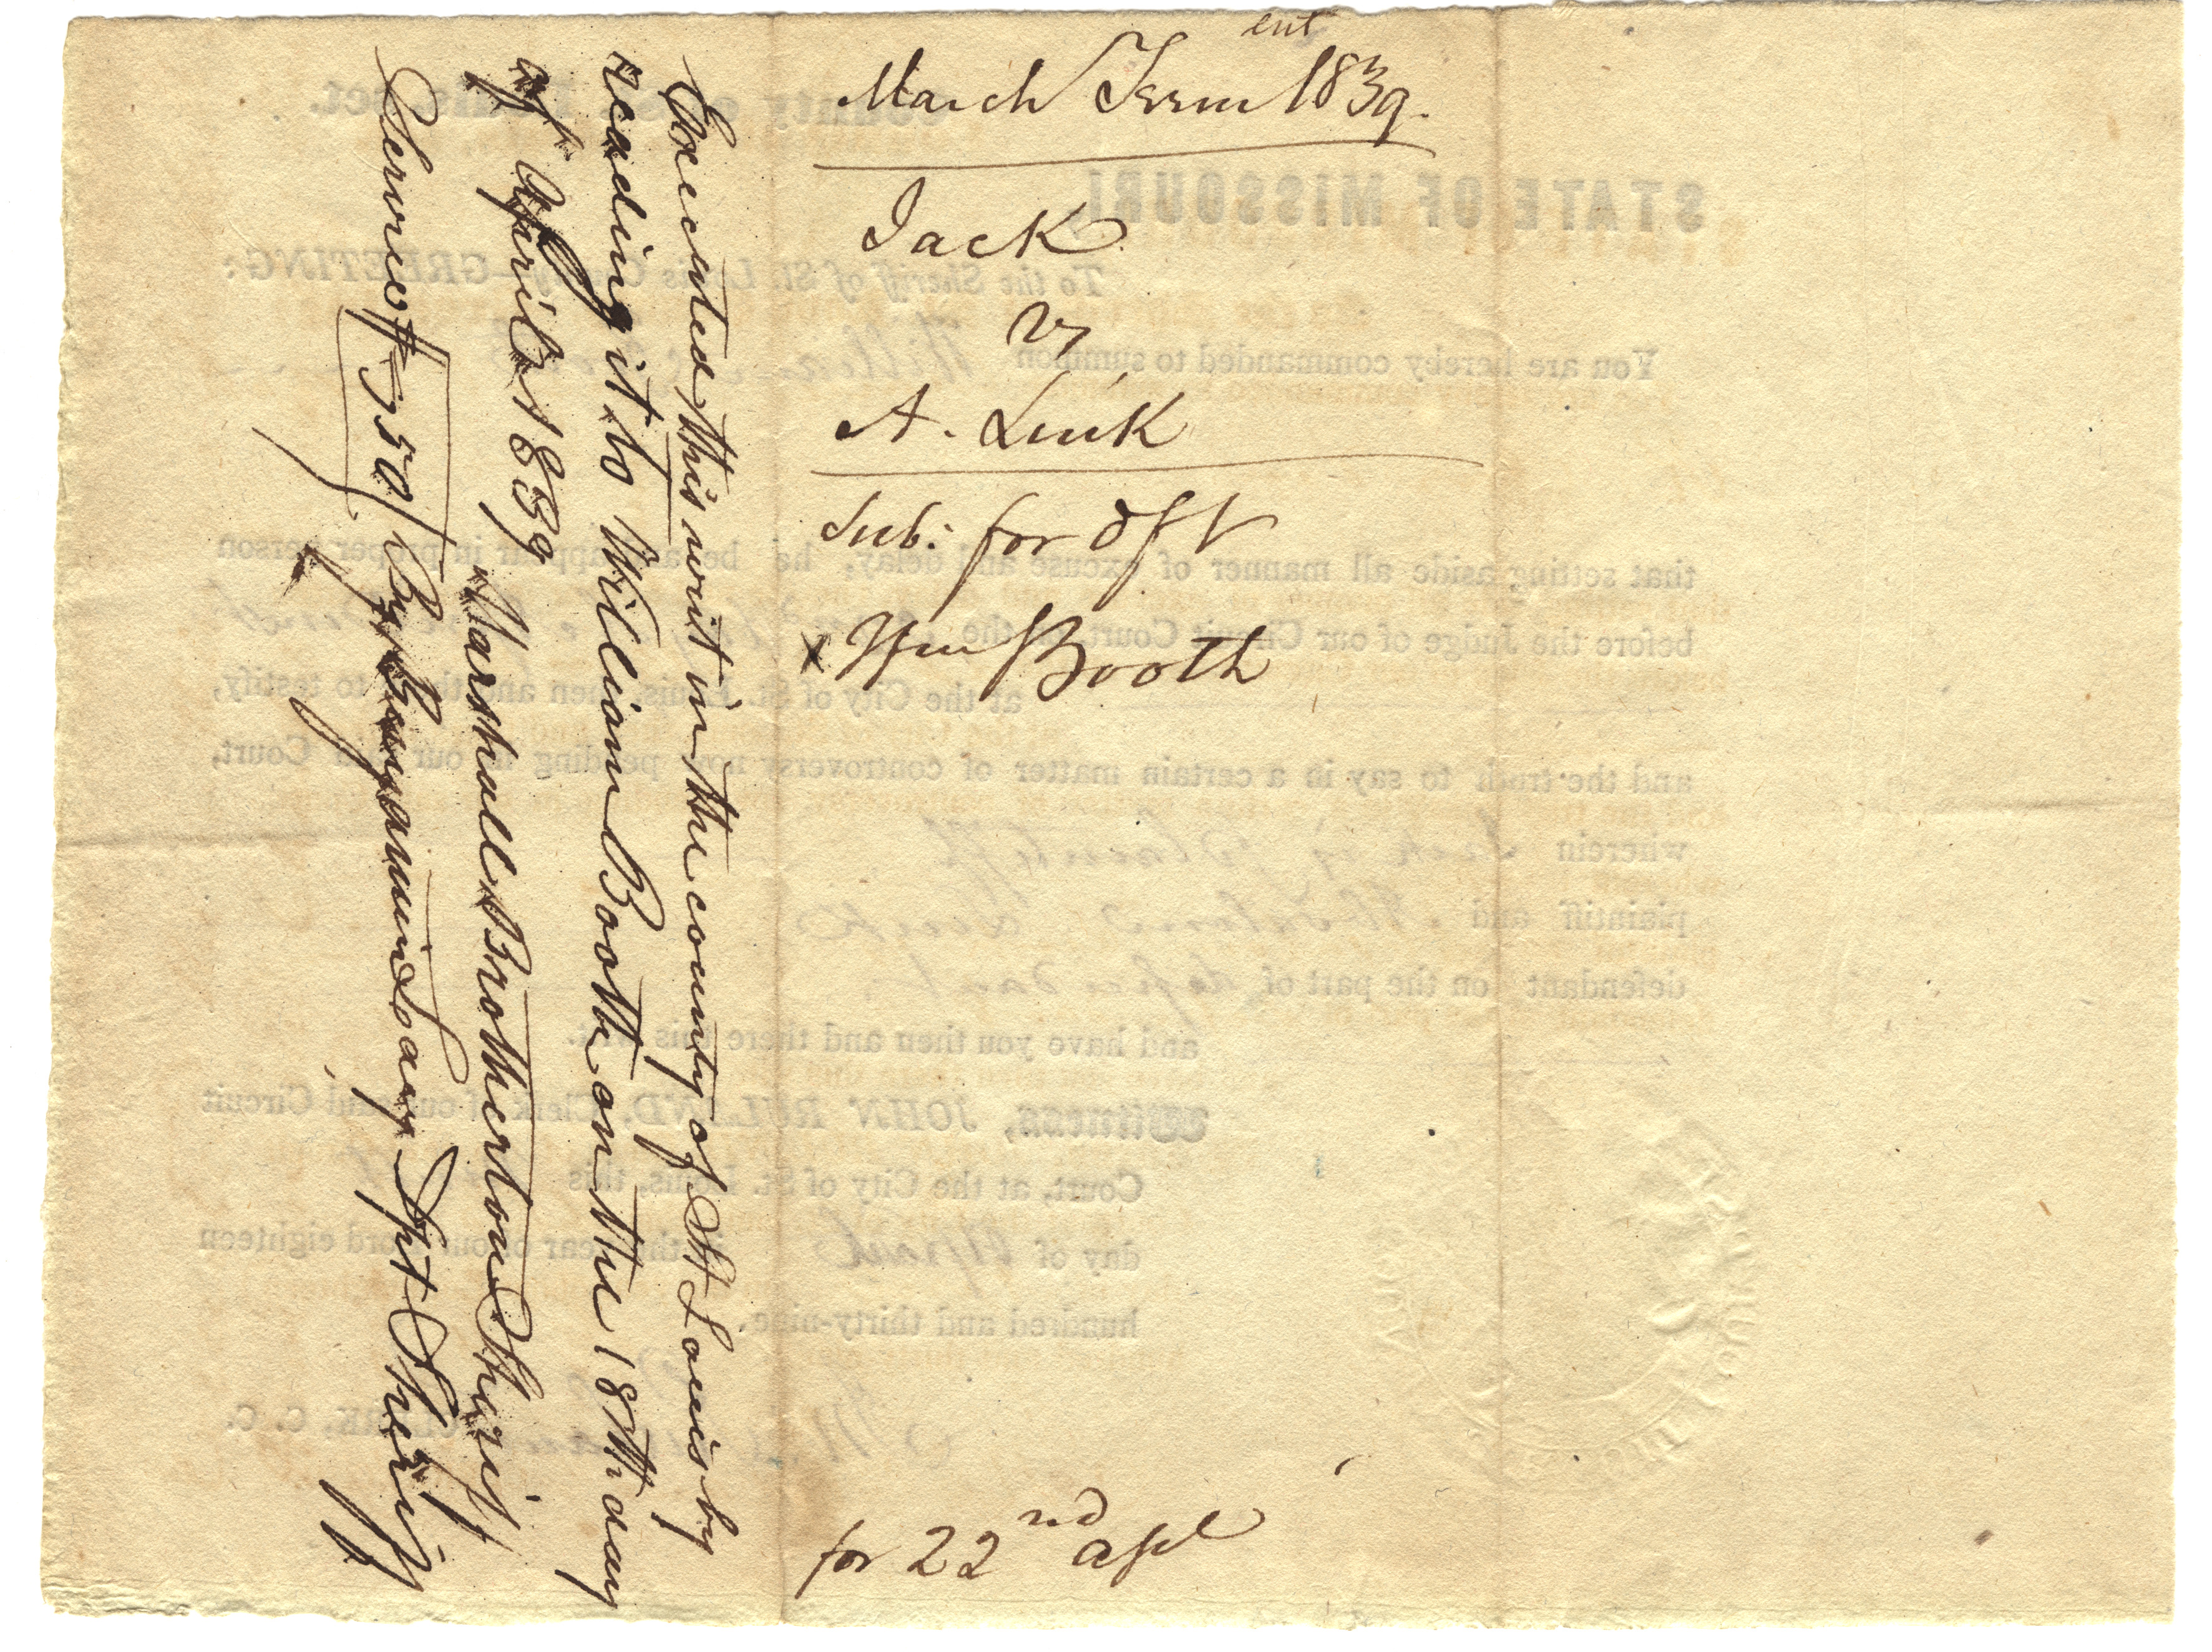 ent
March Term 1839.
Jack
vs
A. Link
Sub: for dft
x Wm Booth
for 22nd apl
Executed this writ in the county of St Louis by
reading it to William Booth on the 18th day
of April 1839
Marshall Brotherton Sheriff
Service $ 50 By Benjamin Say Dpt Sheriff
STATE OF MISSOURI
County of St. Louis, sct.
To the Sheriff of St. Louis County—GREETING:
You are hereby commanded to summon William
that setting aside all manner of excuse and delay, he be and appear in proper person
before the Judge of our Circuit Court, on the
at the City of St. Louis, then and there to testify,
and the truth to say in a certain matter of controversy now pending in our said Court,
wherein Jack is plaintiff
plaintiff and Absalom Link
defendant on the part of defendant
and have you then and there this writ.
Witness, JOHN RULAND, Clerk of our said Circuit
Court, at the City of St. Louis, this
day of April in the year of our Lord eighteen
hundred and thirty-nine.
CLERK, C. C.